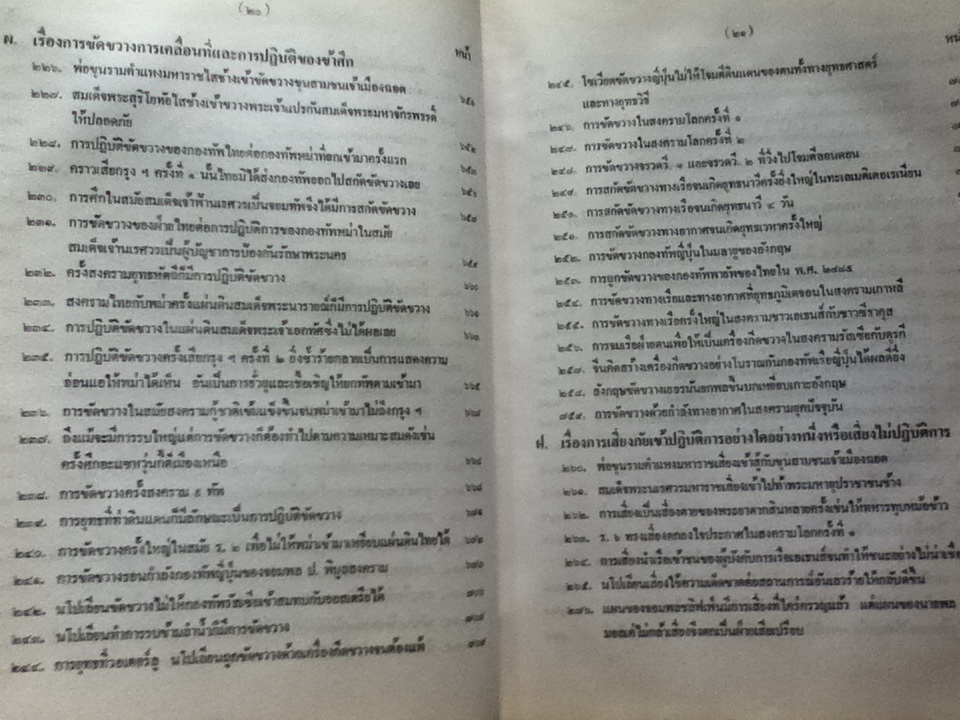 (๒๐)
ผ. เรื่องการขัดขวางการเคลื่อนที่และการปฏิบัติของข้าศึก
หน้า
๒๒๖. พ่อขุนรามคำแหงมหาราชไสช้างเข้าขัดขวางขุนสามชนเจ้าเมืองฉอด ๖๕๑
๒๒๗. สมเด็จพระสุริโยทัยไสช้างเข้าขวางพระเจ้าแปรกันสมเด็จพระมหาจักรพรรดิ์
ให้ปลอดภัย ๖๕๒
๒๒๘. การปฏิบัติขัดขวางของกองทัพไทยต่อกองทัพพม่าที่ยกเข้ามาครั้งแรก
๒๒๙. คราวเสียกรุง ฯ ครั้งที่ ๑ นั้นไทยมิได้ส่งกองทัพออกไปสกัดขัดขวางเลย
๒๓๐. การศึกในสมัยสมเด็จเจ้าฟ้านเรศวรเป็นจอมทัพจึงได้มีการสกัดขัดขวาง
๒๓๑. การขัดขวางของฝ่ายไทยต่อการปฏิบัติการของกองทัพพม่าในสมัย
สมเด็จเจ้านเรศวรเป็นผู้บัญชาการป้องกันรักษาพระนคร
๒๓๒. ครั้งสงครามยุทธหัตถีก็มีการปฏิบัติขัดขวาง
๒๓๓. สงครามไทยกับพม่าครั้งแผ่นดินสมเด็จพระนารายณ์ก็มีการปฏิบัติขัดขวาง
๒๓๔. การปฏิบัติขัดขวางในแผ่นดินสมเด็จพระเจ้าเอกทัศซึ่งไม่ได้ผลเลย
๒๓๕. การปฏิบัติขัดขวางครั้งเสียกรุง ฯ ครั้งที่ ๒ ยิ่งซ้ำร้ายกลายเป็นการแสดงความ
อ่อนแอให้พม่าได้เห็น อันเป็นการยั่วยุและเชื้อเชิญให้ยกทัพตามเข้ามา ๖๖๕
๒๓๖. การขัดขวางในสมัยสงครามกู้ชาติเข้มแข็งขึ้นจนพม่าเข้ามาไม่ถึงกรุง ฯ ๖๖๗
๒๓๗. ถึงแม้จะมีการรบใหญ่แต่การขัดขวางก็ต้องทำไปตามความเหมาะสมดังเช่น
ครั้งศึกอะแซหวุ่นกี้ตีเมืองเหนือ ๖๖๘
๒๓๘. การขัดขวางครั้งสงคราม ๙ ทัพ ๖๖๘
๒๓๙. การยุทธที่ท่าดินแดนก็มีลักษณะเป็นการปฏิบัติขัดขวาง
๒๔๐. การขัดขวางครั้งใหญ่ในสมัย ร. ๒ เพื่อไม่ให้พม่าเข้ามาเหยียบแผ่นดินไทยได้
๒๔๑. การขัดขวางรอนกำลังกองทัพญี่ปุ่นของจอมพล ป. พิบูลสงคราม
๒๔๒. นโปเลียนขัดขวางไม่ให้กองทัพรัสเซียเข้าสมทบกับออสเตรียได้
๒๔๓. นโปเลียนทำการรบข้ามลำน้ำก็มีการขัดขวาง
๒๔๔. การยุทธที่วอเตอร์ลู นโปเลียนถูกขัดขวางด้วยเครื่องกีดขวางจนต้องแพ้
(๒๑)
๒๔๕. โซเวียตขัดขวางญี่ปุ่นไม่ให้โจมตีดินแดนของตนทั้งทางยุทธศาสตร์
และทางยุทธวิธี
๒๔๖. การขัดขวางในสงครามโลกครั้งที่ ๑
๒๔๗. การขัดขวางในสงครามโลกครั้งที่ ๒
๒๔๘. การขัดขวางจรวดวี. ๑ และจรวดวี. ๒ ที่วิ่งไปโจมตีลอนดอน
๒๔๙. การสกัดขัดขวางทางเรือจนเกิดยุทธนาวีครั้งยิ่งใหญ่ในทะเลเมดิเตอเรเนียน
๒๕๐. การสกัดขัดขวางทางเรือจนเกิดยุทธนาวี ๔ วัน
๒๕๑. การสกัดขัดขวางทางอากาศจนเกิดยุทธเวหาครั้งใหญ่
๒๕๒. การขัดขวางกองทัพญี่ปุ่นในมลายูของอังกฤษ
๒๕๓. การถูกขัดขวางของกองทัพพายัพของไทยใน พ.ศ. ๒๔๘๕
๒๕๔. การขัดขวางทางเรือและทางอากาศที่ยุทธภูมิเตจอนในสงครามเกาหลี
๒๕๕. การขัดขวางทางเรือครั้งใหญ่ในสงครามชาวเอเธนส์กับชาวซีราคุส
๒๕๖. การจมเรือฝ่ายตนเพื่อให้เป็นเครื่องกีดขวางในสงครามรัสเซียกับตุรกี
๒๕๗. จีนคิดสร้างเครื่องกีดขวางอย่างโบราณกันกองทัพเรือญี่ปุ่นได้ผลดียิ่ง
๒๕๘. อังกฤษขัดขวางเยอรมันยกพลขึ้นบกเหยียบเกาะอังกฤษ
๒๕๙. การขัดขวางด้วยกำลังทางอากาศในสงครามยุคปัจจุบัน
ฝ. เรื่องการเสี่ยงภัยเข้าปฏิบัติการอย่างใดอย่างหนึ่งหรือเสี่ยงไม่ปฏิบัติการ
๒๖๐. พ่อขุนรามคำแหงมหาราชเสี่ยงเข้าสู้กับขุนสามชนเจ้าเมืองฉอด
๒๖๑. สมเด็จพระนเรศวรมหาราชเสี่ยงเข้าไปท้าพระมหาอุปราชาชนช้าง
๒๖๒. การเสี่ยงเป็นเสี่ยงตายของพระยาตากสินหลายครั้งเช่นให้ทหารทุบหม้อข้าว
๒๖๓. ร. ๖ ทรงเสี่ยงตกลงใจประกาศในสงครามโลกครั้งที่ ๑
๒๖๔. การเสี่ยงนำเรือเข้าชนของผู้บังคับการเรือเอเธนส์จนทำให้ชนะอย่างไม่น่าเชื่อ
๒๖๕. นโปเลียนเสี่ยงใช้ความเด็ดขาดต่อสถานการณ์อันเลวร้ายให้กลับดีขึ้น
๒๖๖. แผนของจอมพลชลิฟเฟ็นมีการเสี่ยงที่ใคร่ครวญแล้ว แต่แผนของนายพล
มอลเก้ไม่กล้าเสี่ยงจึงตกเป็นฝ่ายเสียเปรียบ